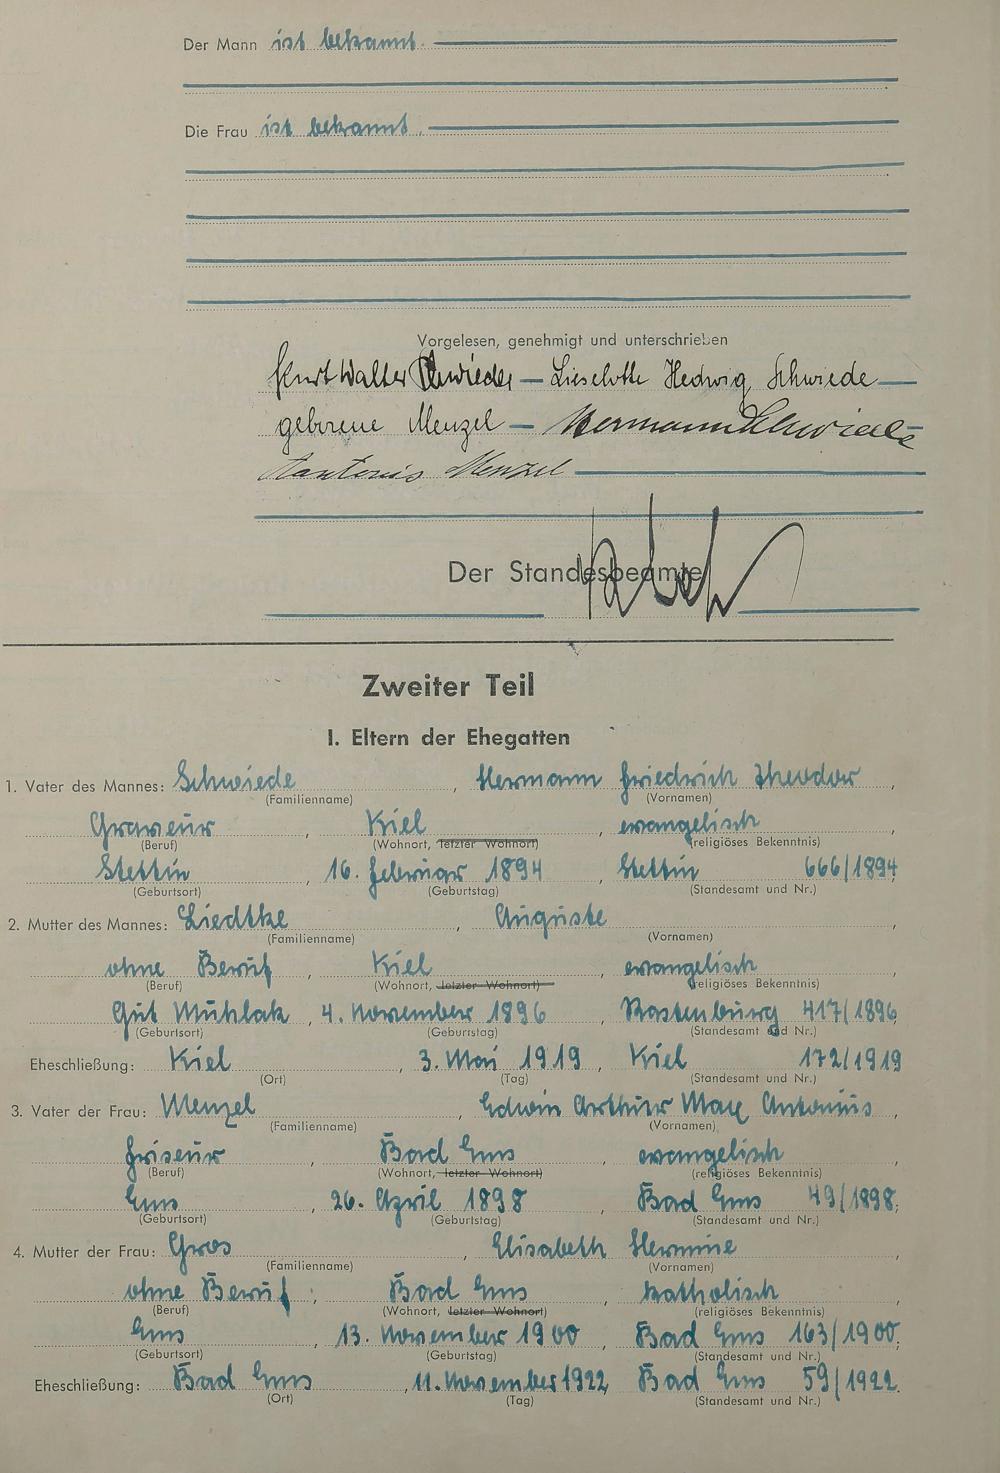 Der Mann ist bekannt.
Die Frau ist bekannt.
Vorgelesen, genehmigt und unterschrieben
Kurt Walter Schwiede — Lieselotte Hedwig Schwiede —
geborene Menzel — Hermann Schwiede
Antonius Menzel
Der Standesbeamte
Zweiter Teil
I. Eltern der Ehegatten
1. Vater des Mannes: Schwiede, Hermann Friedrich Theodor,
(Familienname) (Vornamen)
Graveur, Kiel, evangelisch
(Beruf) (Wohnort, letzter Wohnort) (religiöses Bekenntnis)
Stettin, 16. Februar 1894, Stettin 666/1894
(Geburtsort) (Geburtstag) (Standesamt und Nr.)
2. Mutter des Mannes: Liedtke, Auguste,
(Familienname) (Vornamen)
ohne Beruf, Kiel, evangelisch,
(Beruf) (Wohnort, letzter Wohnort) (religiöses Bekenntnis)
Gut Mühlak, 4. November 1896, Rastenburg 417/1896,
(Geburtsort) (Geburtstag) (Standesamt und Nr.)
Eheschließung: Kiel, 3. Mai 1919, Kiel 172/1919
(Ort) (Tag) (Standesamt und Nr.)
3. Vater der Frau: Menzel, Edwin Arthur Max Antonius,
(Familienname) (Vornamen)
Friseur, Bad Ems, evangelisch,
(Beruf) (Wohnort, letzter Wohnort) (religiöses Bekenntnis)
Ems, 26. April 1898, Bad Ems 49/1898,
(Geburtsort) (Geburtstag) (Standesamt und Nr.)
4. Mutter der Frau: Gros, Elisabeth Hermine,
(Familienname) (Vornamen)
ohne Beruf, Bad Ems, katholisch,
(Beruf) (Wohnort, letzter Wohnort) (religiöses Bekenntnis)
Ems, 13. November 1900, Bad Ems 163/1900,
(Geburtsort) (Geburtstag) (Standesamt und Nr.)
Eheschließung: Bad Ems, 11. November 1922, Bad Ems 59/1922.
(Ort) (Tag) (Standesamt und Nr.)